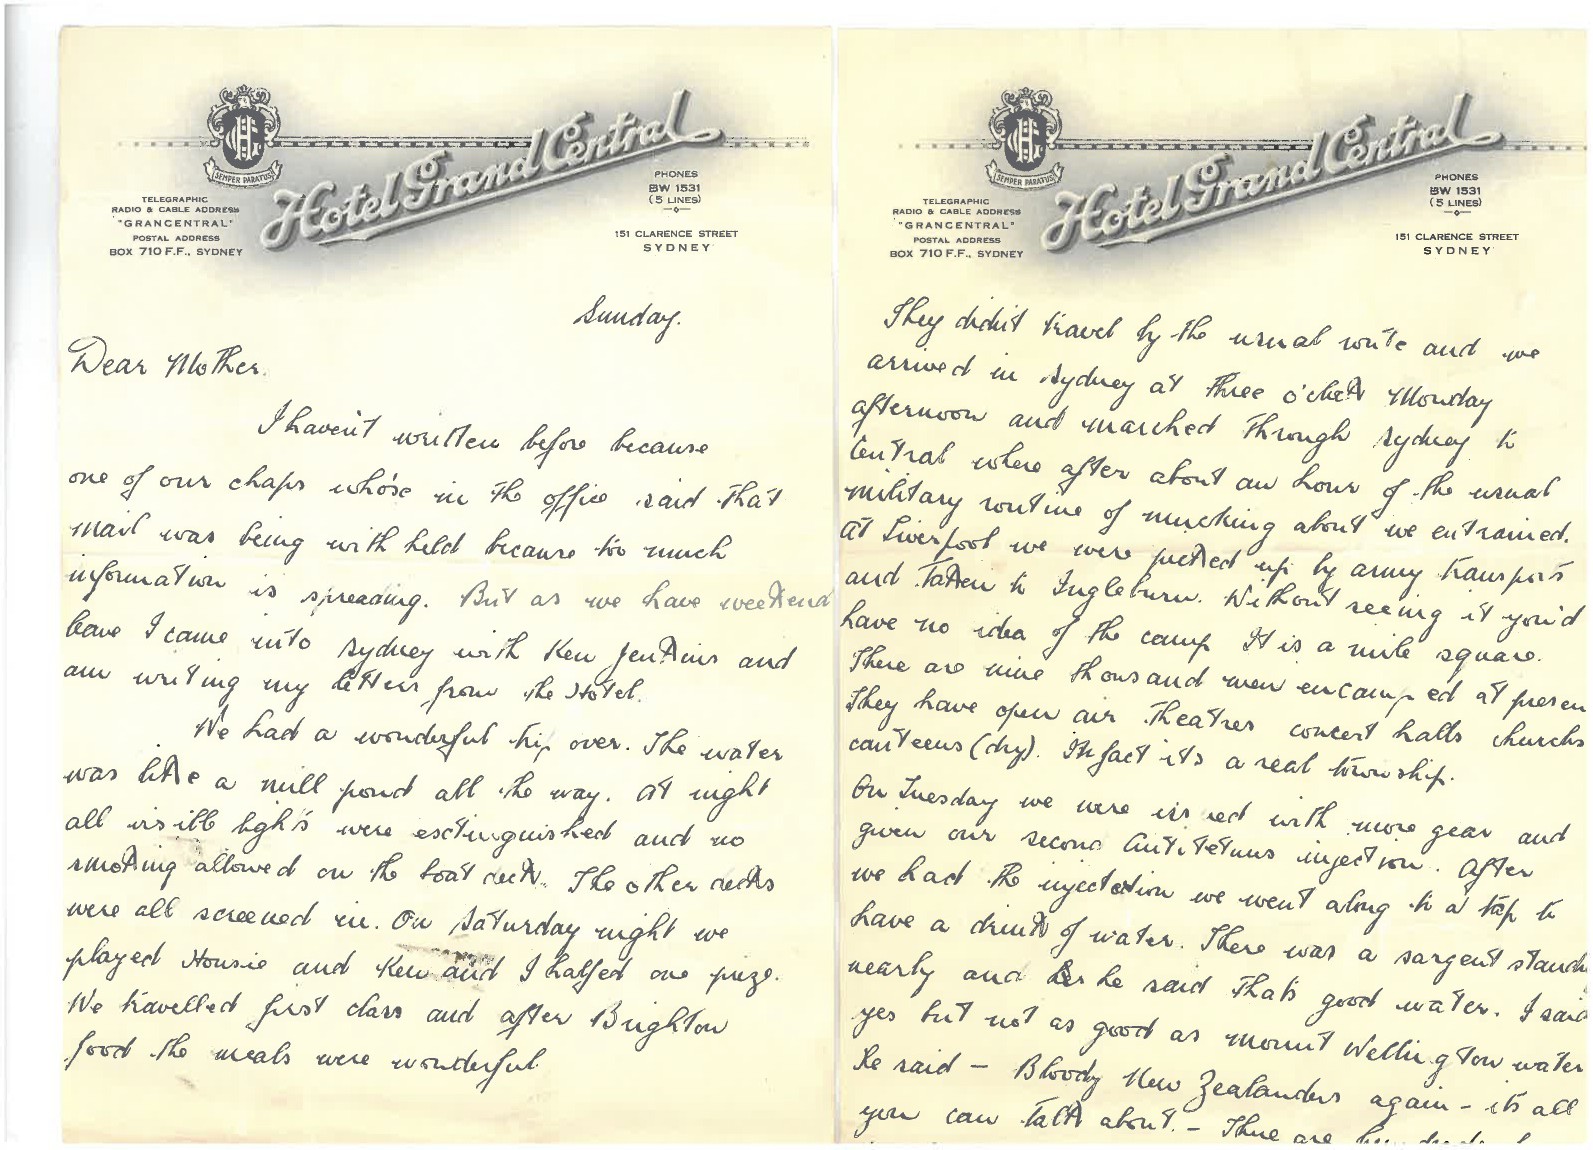 Hotel Grand Central
SEMPER PARATUS
TELEGRAPHIC
RADIO & CABLE ADDRESS
"GRANCENTRAL"
POSTAL ADDRESS
BOX 710 F.F., SYDNEY
PHONES
BW 1531
(5 LINES)
151 CLARENCE STREET
SYDNEY
Sunday.
Dear Mother.
I haven't written before because
one of our chaps who'se in the office said that
mail was being with held because too much
information is spreading. But as we have weekend
leave I came into Sydney with Ken Jenkins and
am writing my letters from the Hotel.
We had a wonderful trip over. The water
was like a mill pond all the way. At night
all lights were esctinguished and no
smoking allowed on the boat deck. The other decks
were all screened in. On Saturday night we
played Housie and Ken and I halfed one prize.
We travelled first class and after Brighton
food the meals were wonderful
Hotel Grand Central
SEMPER PARATUS
TELEGRAPHIC
RADIO & CABLE ADDRESS
"GRANCENTRAL"
POSTAL ADDRESS
BOX 710 F.F., SYDNEY
PHONES
BW 1531
(5 LINES)
151 CLARENCE STREET
SYDNEY
They didn't travel by the usual route and we
arrived in Sydney at three o'clock Monday
afternoon and marched through Sydney to
Central where after about an hour of the usual
military routine of mucking about we entrained.
At Liverpool we were picked up by army transports
and taken to Ingleburn. Without seeing it you'd
have no idea of the camp It is a mile square.
There are nine thousand men encamped at presen
They have open air theatres concert halls churchs
canteens (dry). In fact it's a real township.
On Tuesday we were issued with more gear and
given our second Antitetnus injection. After
we had the injectction we went along to a tap to
have a drink of water. There was a sargent standi
nearly and he said that's good water. I said
yes but not as good as mount Wellington water
he said - Bloody New Zealanders again - it's all
you can talk about. - There are